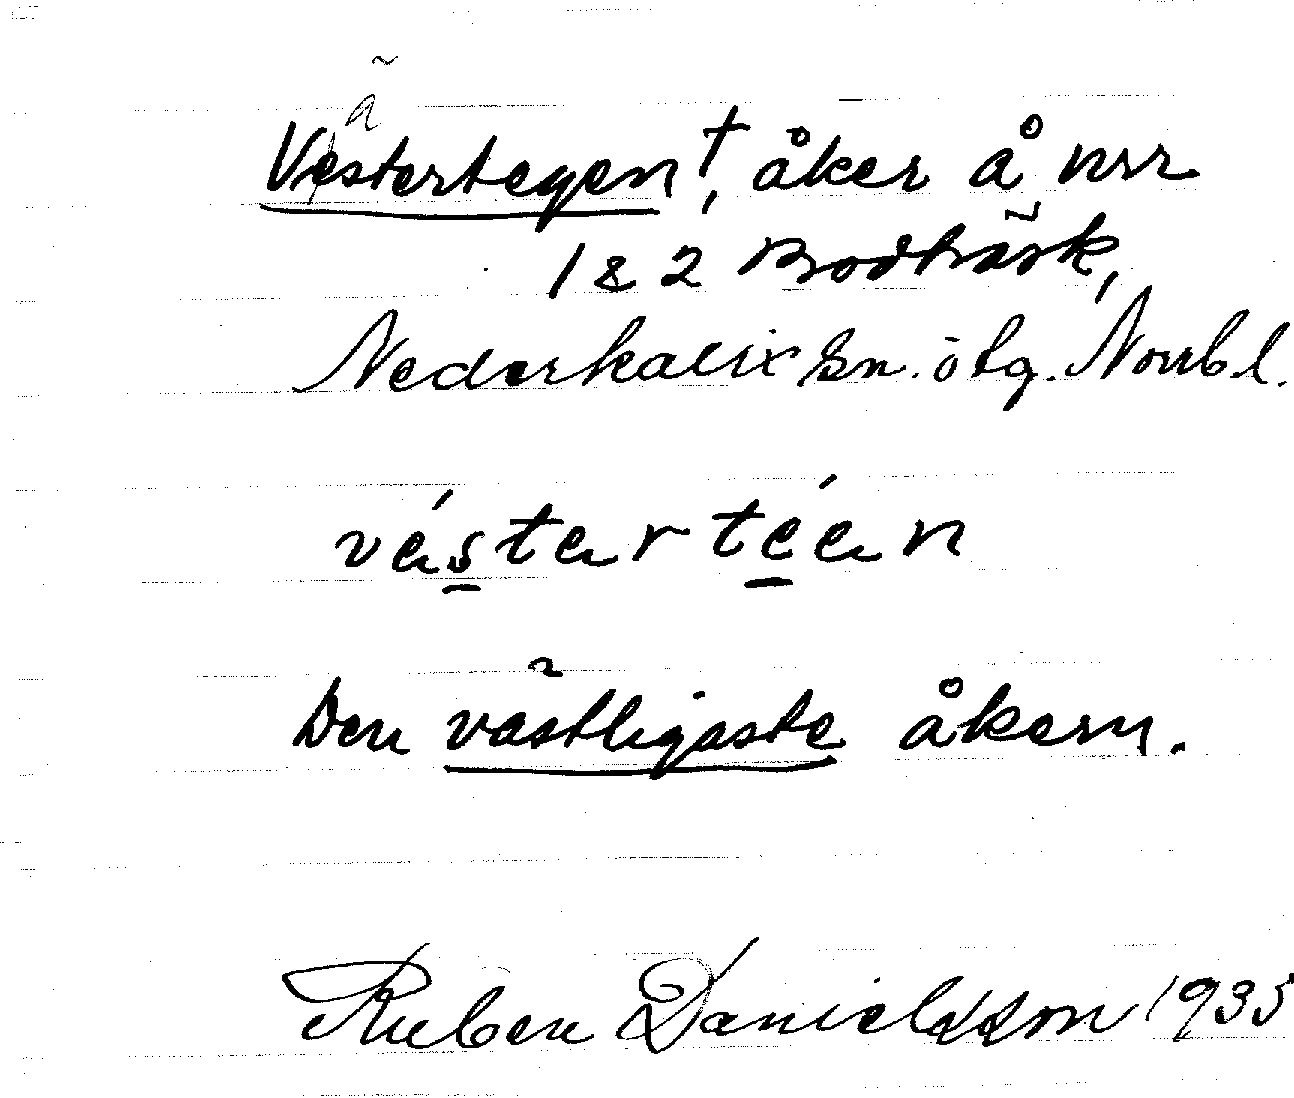 Västertegen†, åker å nrr
1 & 2 Brodträsk,
Nederkalix sn. ö tg. Norrb.l.
vésterteén
Den västligaste åkern.
Ruben Danielsson 1935